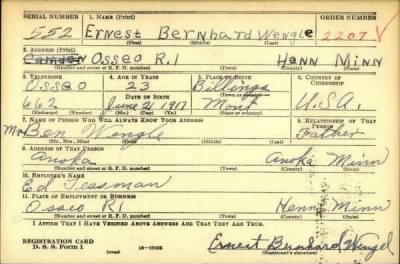 SERIAL NUMBER 1. NAME (Print) ORDER NUMBER
552 Ernest Bernhard Wengle 2207
(First) (Middle) (Last)
2. ADDRESS (Print)
Camden Osseo R.1 Henn Minn
(Number and street or R. F. D. number) (Town) (County) (State)
3. TELEPHONE 4. AGE IN YEARS 5. PLACE OF BIRTH 6. COUNTRY OF CITIZENSHIP
Osseo 23 Billings
DATE OF BIRTH (Town or county)
662 June 21 1917 Mont U.S.A.
(Exchange) (Number) (Mo.) (Day) (Yr.) (State or country)
7. NAME OF PERSON WHO WILL ALWAYS KNOW YOUR ADDRESS 8. RELATIONSHIP OF THAT PERSON
Mr Ben Wengle Father
(Mr., Mrs., Miss) (First) (Middle) (Last)
9. ADDRESS OF THAT PERSON
Anoka Anoka Minn
(Number and street or R. F. D. number) (Town) (County) (State)
10. EMPLOYER'S NAME
Ed Tessman
11. PLACE OF EMPLOYMENT OR BUSINESS
Osseo R1 Henn Minn
(Number and street or R. F. D. number) (Town) (County) (State)
I AFFIRM THAT I HAVE VERIFIED ABOVE ANSWERS AND THAT THEY ARE TRUE.
REGISTRATION CARD
D. S. S. Form 1 Ernest Bernhard Wengel
(Registrant's signature)